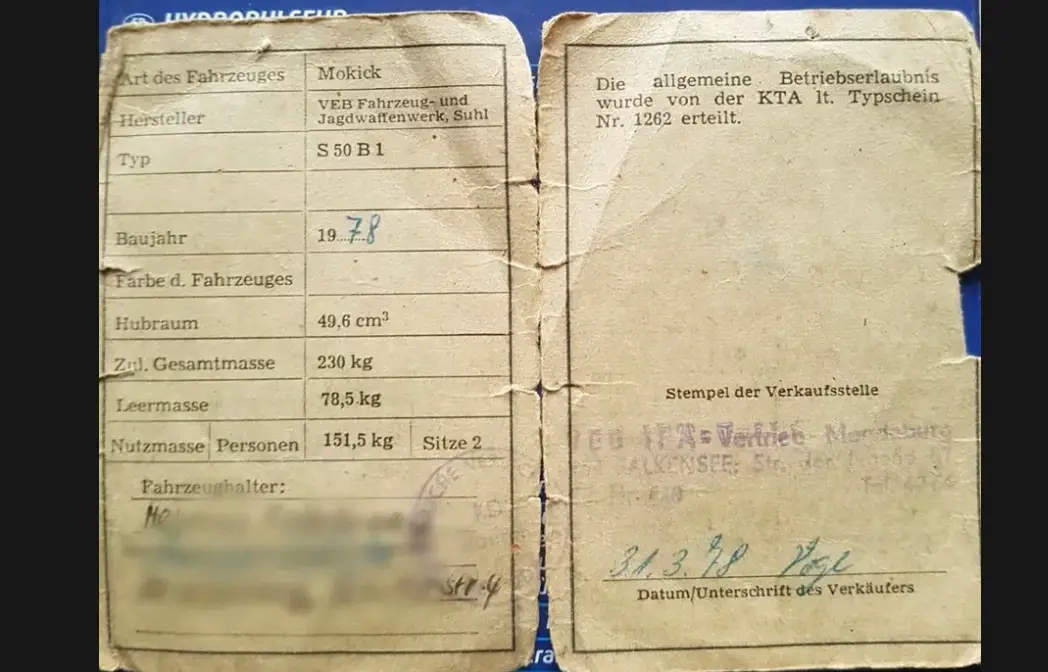 Art des Fahrzeuges Mokick
Hersteller VEB Fahrzeug- und
Jagdwaffenwerk, Suhl
Typ S 50 B 1
Baujahr 19....78
Farbe d. Fahrzeuges
Hubraum 49,6 cm³
Zul. Gesamtmasse 230 kg
Leermasse 78,5 kg
Nutzmasse Personen 151,5 kg Sitze 2
Fahrzeughalter:
Str. 4
Die allgemeine Betriebserlaubnis
wurde von der KTA lt. Typschein
Nr. 1262 erteilt.
Stempel der Verkaufsstelle
IFA-Vertrieb Magdeburg
FALKENSEE, Str. der Jugend
31.3.78
Datum/Unterschrift des Verkäufers